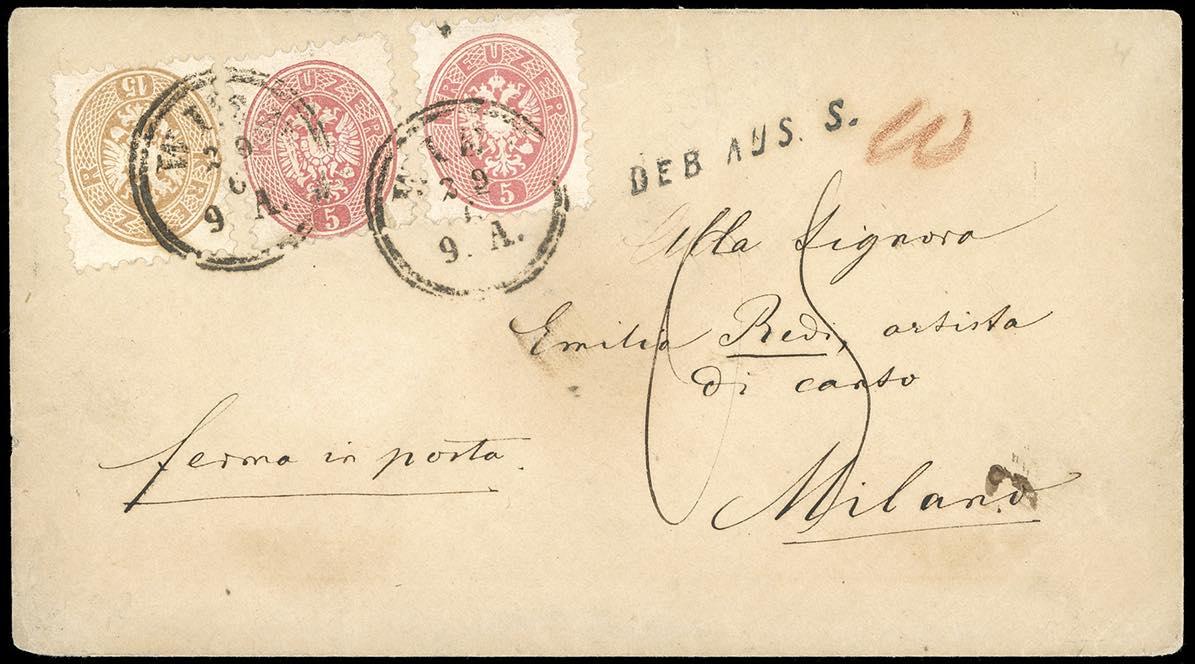 15 KREUZER
KREUZER 5
KREUZER 5
WIEN
9. A.
WIEN
9. A.
DEB AUS. S.
Alla Signora
Emilia Redi, artista
di canto
ferma in posta.
Milano